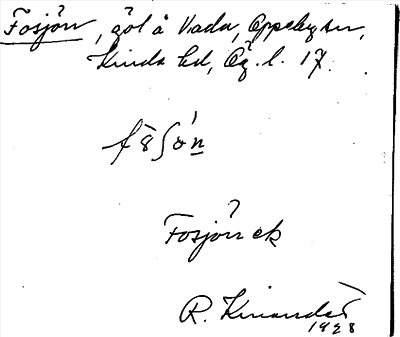 Fosjön, göl å Vada, Oppeby sn,
Kinda hd, Ög. l. 17.
Fosjön ek
R. Kinander
1928